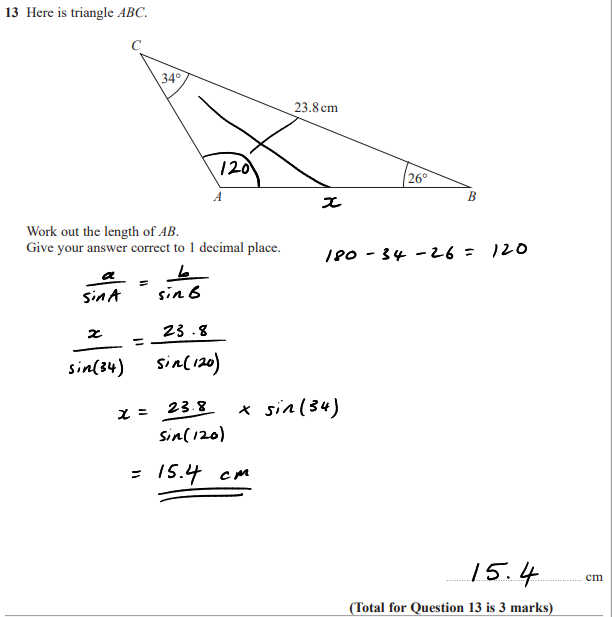 13 Here is triangle ABC.
C
34°
23.8 cm
120
26°
A
x
B
Work out the length of AB.
Give your answer correct to 1 decimal place.
180 - 34 - 26 = 120
a/sin A = b/sin B
x/sin(34) = 23.8/sin(120)
x = 23.8/sin(120) × sin(34)
= 15.4 cm
15.4 cm
(Total for Question 13 is 3 marks)